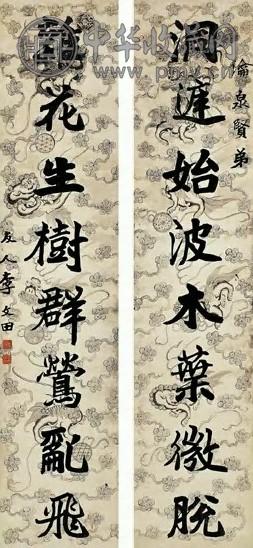 中华收藏网
渝泉賢弟
洞庭始波木葉微脫
雜花生樹群鶯亂飛
友人李文田